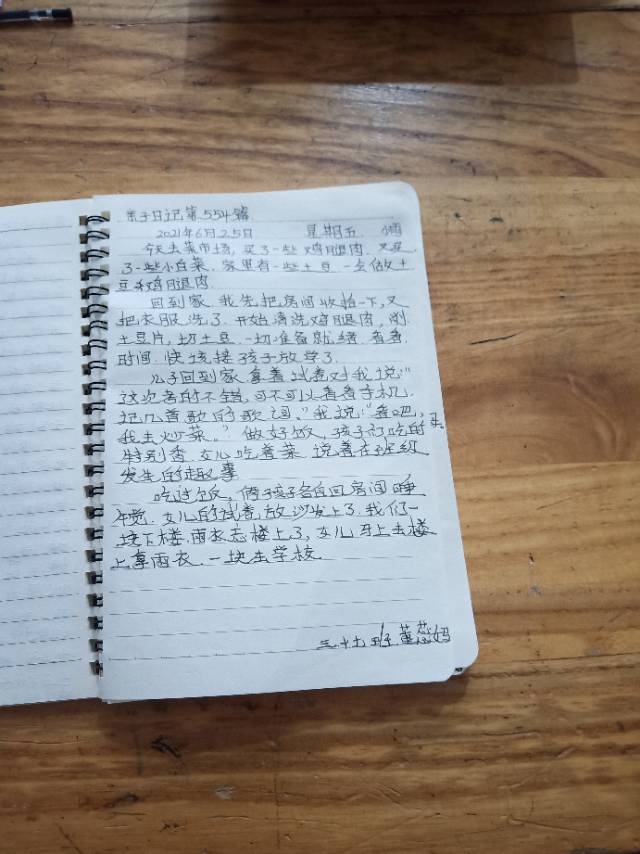 亲子日记第554篇
2021年6月25日 星期五 晴
今天去菜市场,买了一些鸡腿肉,又买
了一些小白菜.家里有一些土豆.一会做土
豆炖鸡腿肉.
回到家.我先把房间收拾一下,又
把衣服洗了.开始清洗鸡腿肉,削
土豆片,切土豆.一切准备就绪.看看
时间.快该接孩子放学了.
儿子回到家.拿着试卷对我说:"
这次考的不错,可不可以看看手机.
记几首歌的歌词."我说:"看吧,
我去炒菜."做好饭,孩子们吃的
特别香.女儿吃着菜.说着在班级
发生的趣事
吃过饭,俩孩子各自回房间睡
午觉.女儿的试卷放沙发上了.我们一
块下楼.雨衣忘楼上了,女儿马上去楼
上拿雨衣.一块去学校.
三十七班.董蕊妈